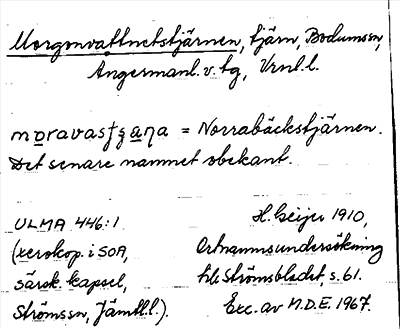 Morgonvattnetstjärnen, tjärn, Bodumssn,
Ångermanl. v. tg, Vrnl.l.
= Norrabäckstjärnen.
Det senare namnet obekant.
ULMA 446:1
(xerokop. i SOA,
särsk. kapsel,
Strömssn, Jämtl.l.).
H. Geijer 1910,
Ortnamnsundersökning
till Strömsbladet, s. 61.
Exc. av M.D.E. 1967.